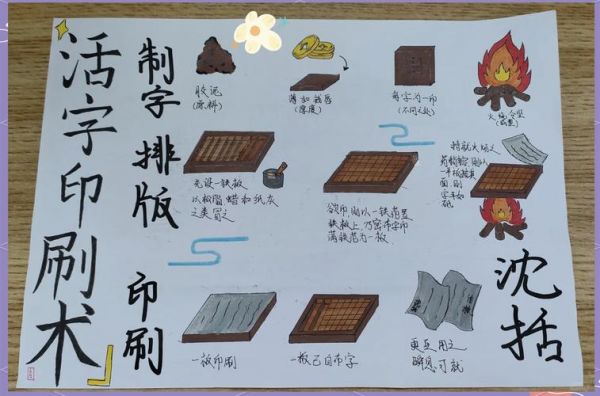 活字印刷术
制字
胶泥
(原料)
薄如钱唇
(厚度)
每字为一印
(不同之处)
火烧令坚
排版
先设一铁板
以松脂 蜡和纸灰
之类冒之
欲印则以一铁范置
铁板上,乃密布字印
满铁范为一板
持就火炀之
药稍镕,则以
一平板按其
面,则
字平如
砥
印刷
一板印刷
一板已自布字
更互用之
瞬息可就
沈括